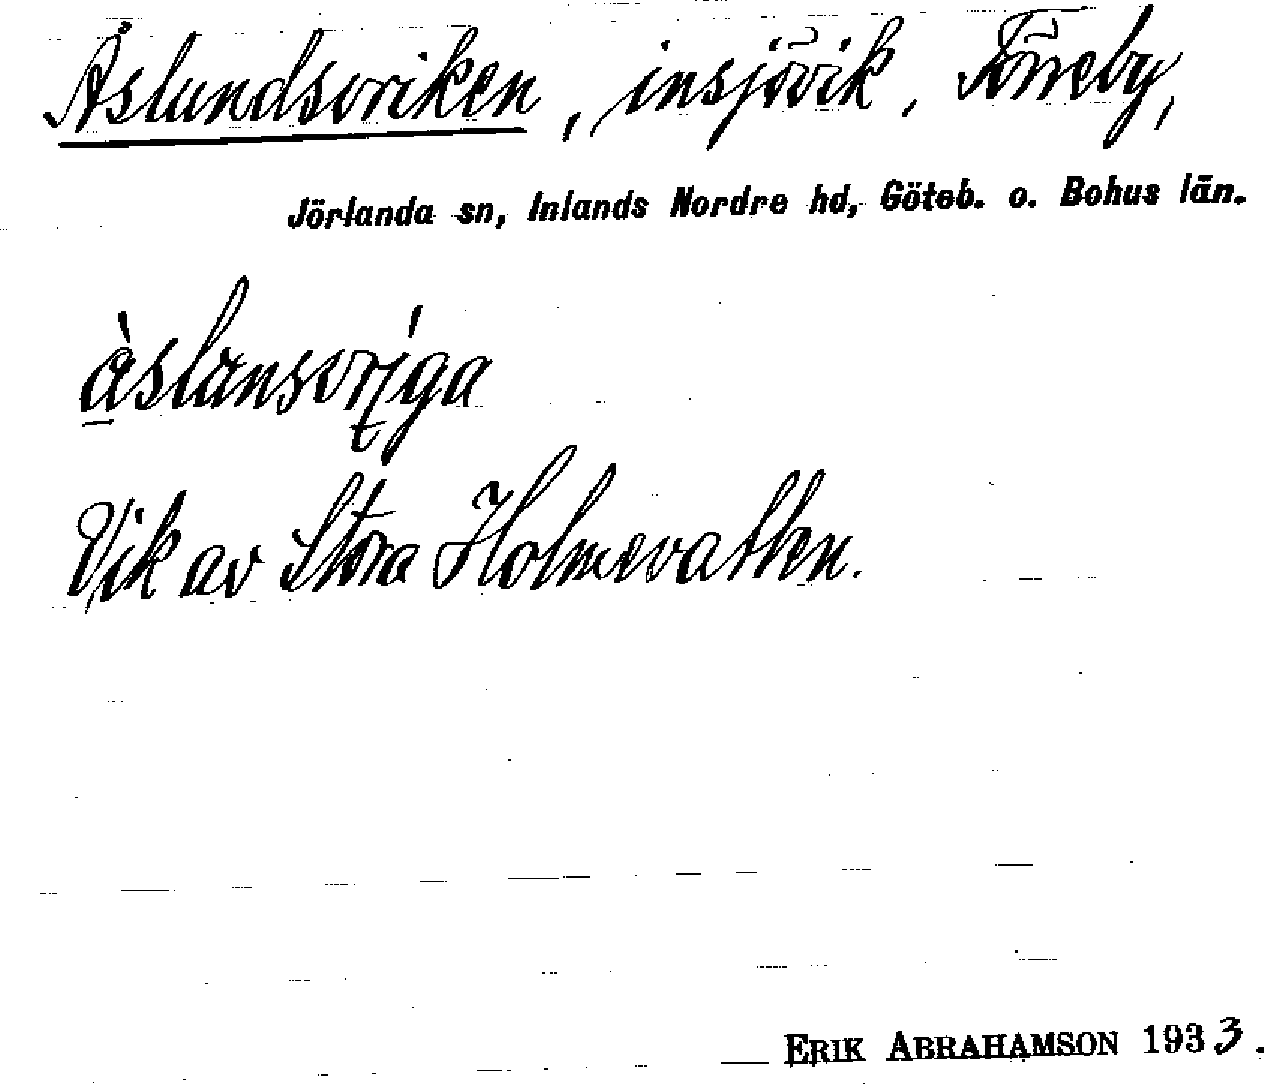 Åslundsviken, insjövik, Torreby,
Jörlanda sn, Inlands Nordre hd, Göteb. o. Bohus län.
Vik av Stora Holmevatten.
ERIK ABRAHAMSON 1933.